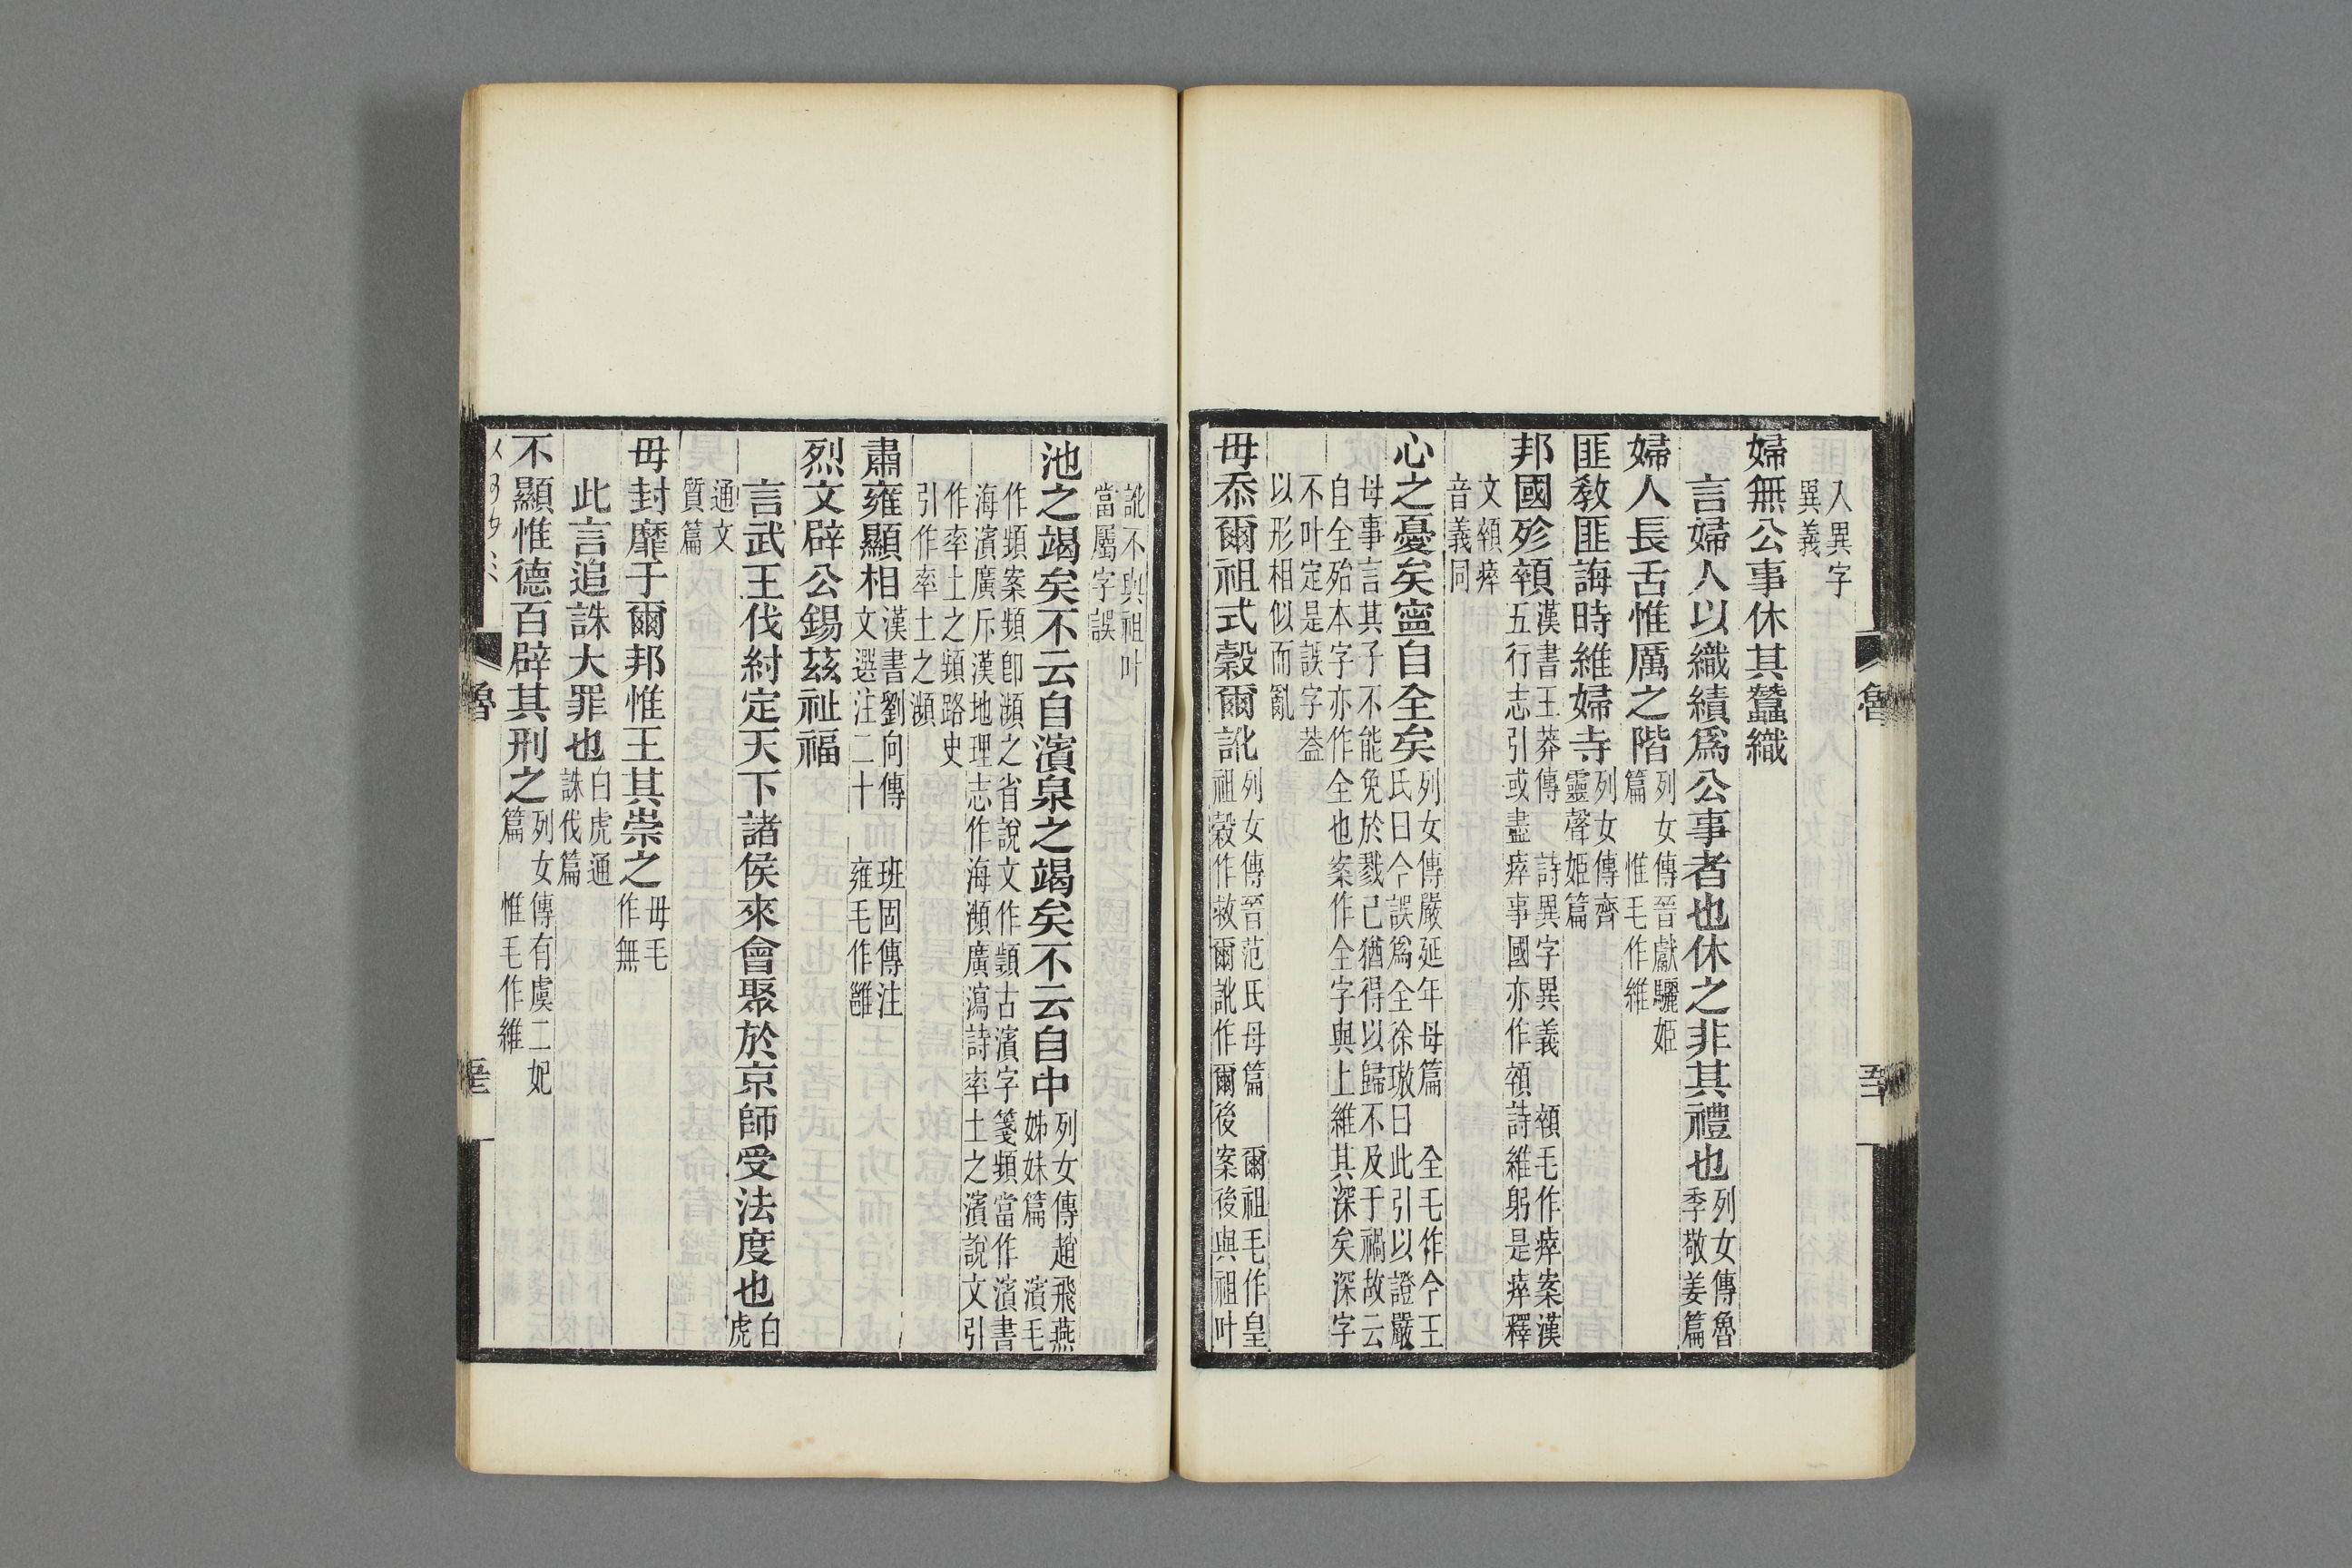 入異字
異義
婦無公事休其蠶織
言婦人以織績爲公事者也休之非其禮也列女傳魯
季敬姜篇
婦人長舌惟厲之階列女傳晉獻驪姬
篇　惟毛作維
匪敎匪誨時維婦寺列女傳齊
靈聲姬篇
邦國殄顇漢書王莽傳　詩異字異義　顇毛作瘁案漢
五行志引或盡瘁事國亦作顇詩維躬是瘁釋
文顇瘁
音義同
心之憂矣寍自全矣列女傳嚴延年母篇　全毛作今王
氏曰今誤爲全徐璈曰此引以證嚴
母事言其子不能免於戮己猶得以歸不及于禍故云
自全殆本字亦作全也案作全字與上維其深矣深字
不叶定是誤字葢
以形相似而亂
毋忝爾祖式穀爾訛列女傳晉范氏母篇　爾祖毛作皇
祖穀作救爾訛作爾後　案後與祖叶
訛不與祖叶
當屬字誤
池之竭矣不云自濱泉之竭矣不云自中列女傳趙飛燕
姊妹篇　濱毛
作頻案頻卽瀕之省說文作顮古濱字箋頻當作濱書
海濱廣斥漢地理志作海瀕廣潟詩率土之濱說文引
作率土之頻路史
引作率土之瀕
肅雍顯相漢書劉向傳　班固傳注
文選注二十　雍毛作雝
烈文辟公錫茲祉福
言武王伐紂定天下諸侯來會聚於京師受法度也白
虎
通文
質篇
毋封靡于爾邦惟王其崇之毋毛
作無
此言追誅大罪也白虎通
誅伐篇
不顯惟德百辟其刑之列女傳有虞二妃
篇　惟毛作維
魯